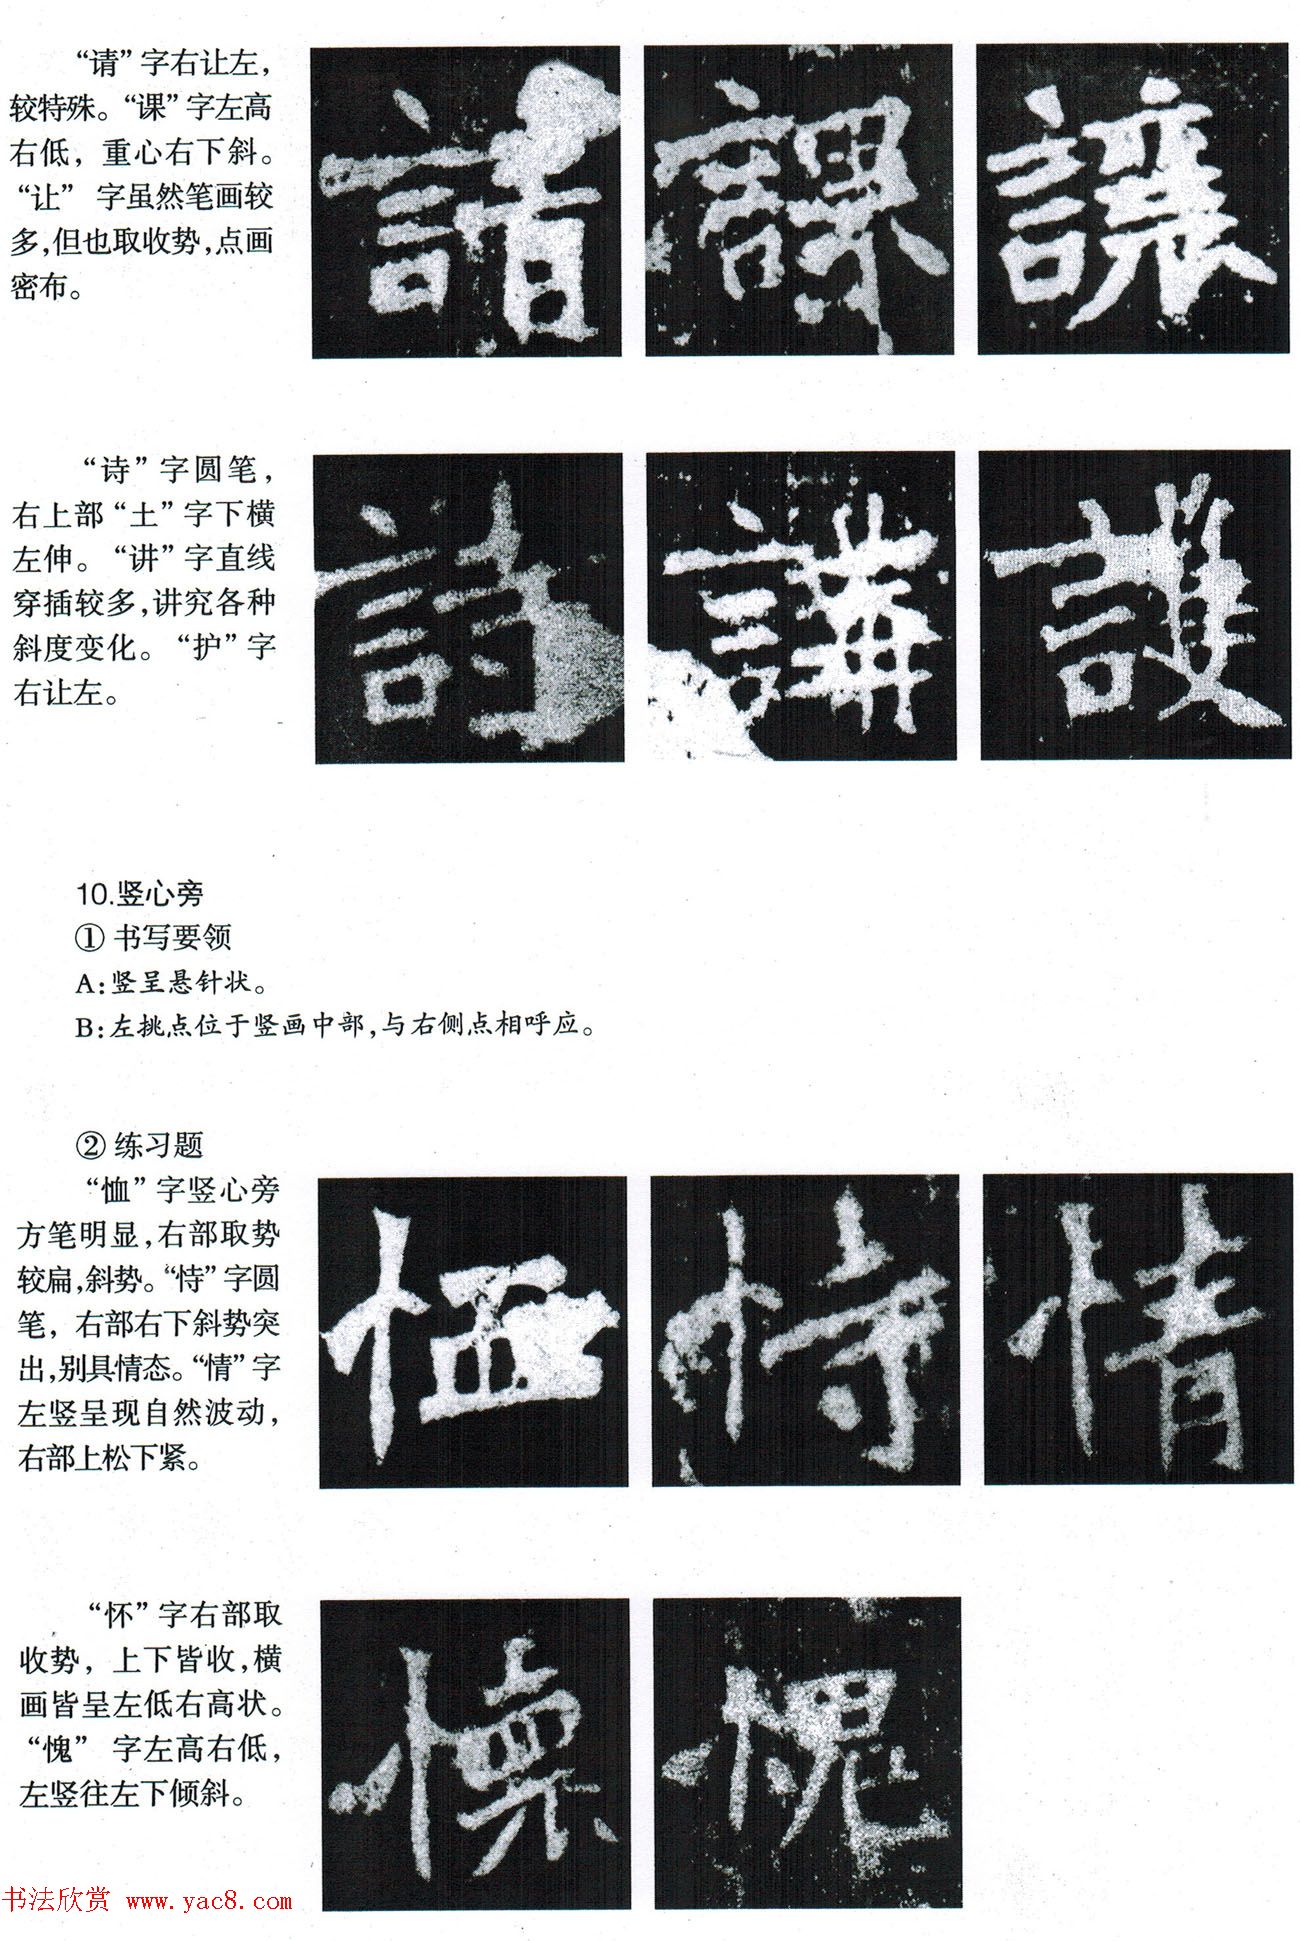 “请”字右让左，
较特殊。“课”字左高
右低，重心右下斜。
“让”字虽然笔画较
多，但也取收势，点画
密布。
請 課 讓
“诗”字圆笔，
右上部“土”字下横
左伸。“讲”字直线
穿插较多，讲究各种
斜度变化。“护”字
右让左。
詩 講 護
10.竖心旁
①书写要领
A：竖呈悬针状。
B：左挑点位于竖画中部，与右侧点相呼应。
②练习题
“恤”字竖心旁
方笔明显，右部取势
较扁，斜势。“恃”字圆
笔，右部右下斜势突
出，别具情态。“情”字
左竖呈现自然波动，
右部上松下紧。
恤 恃 情
“怀”字右部取
收势，上下皆收，横
画皆呈左低右高状。
“愧”字左高右低，
左竖往左下倾斜。
懷 愧
书法欣赏 www.yac8.com